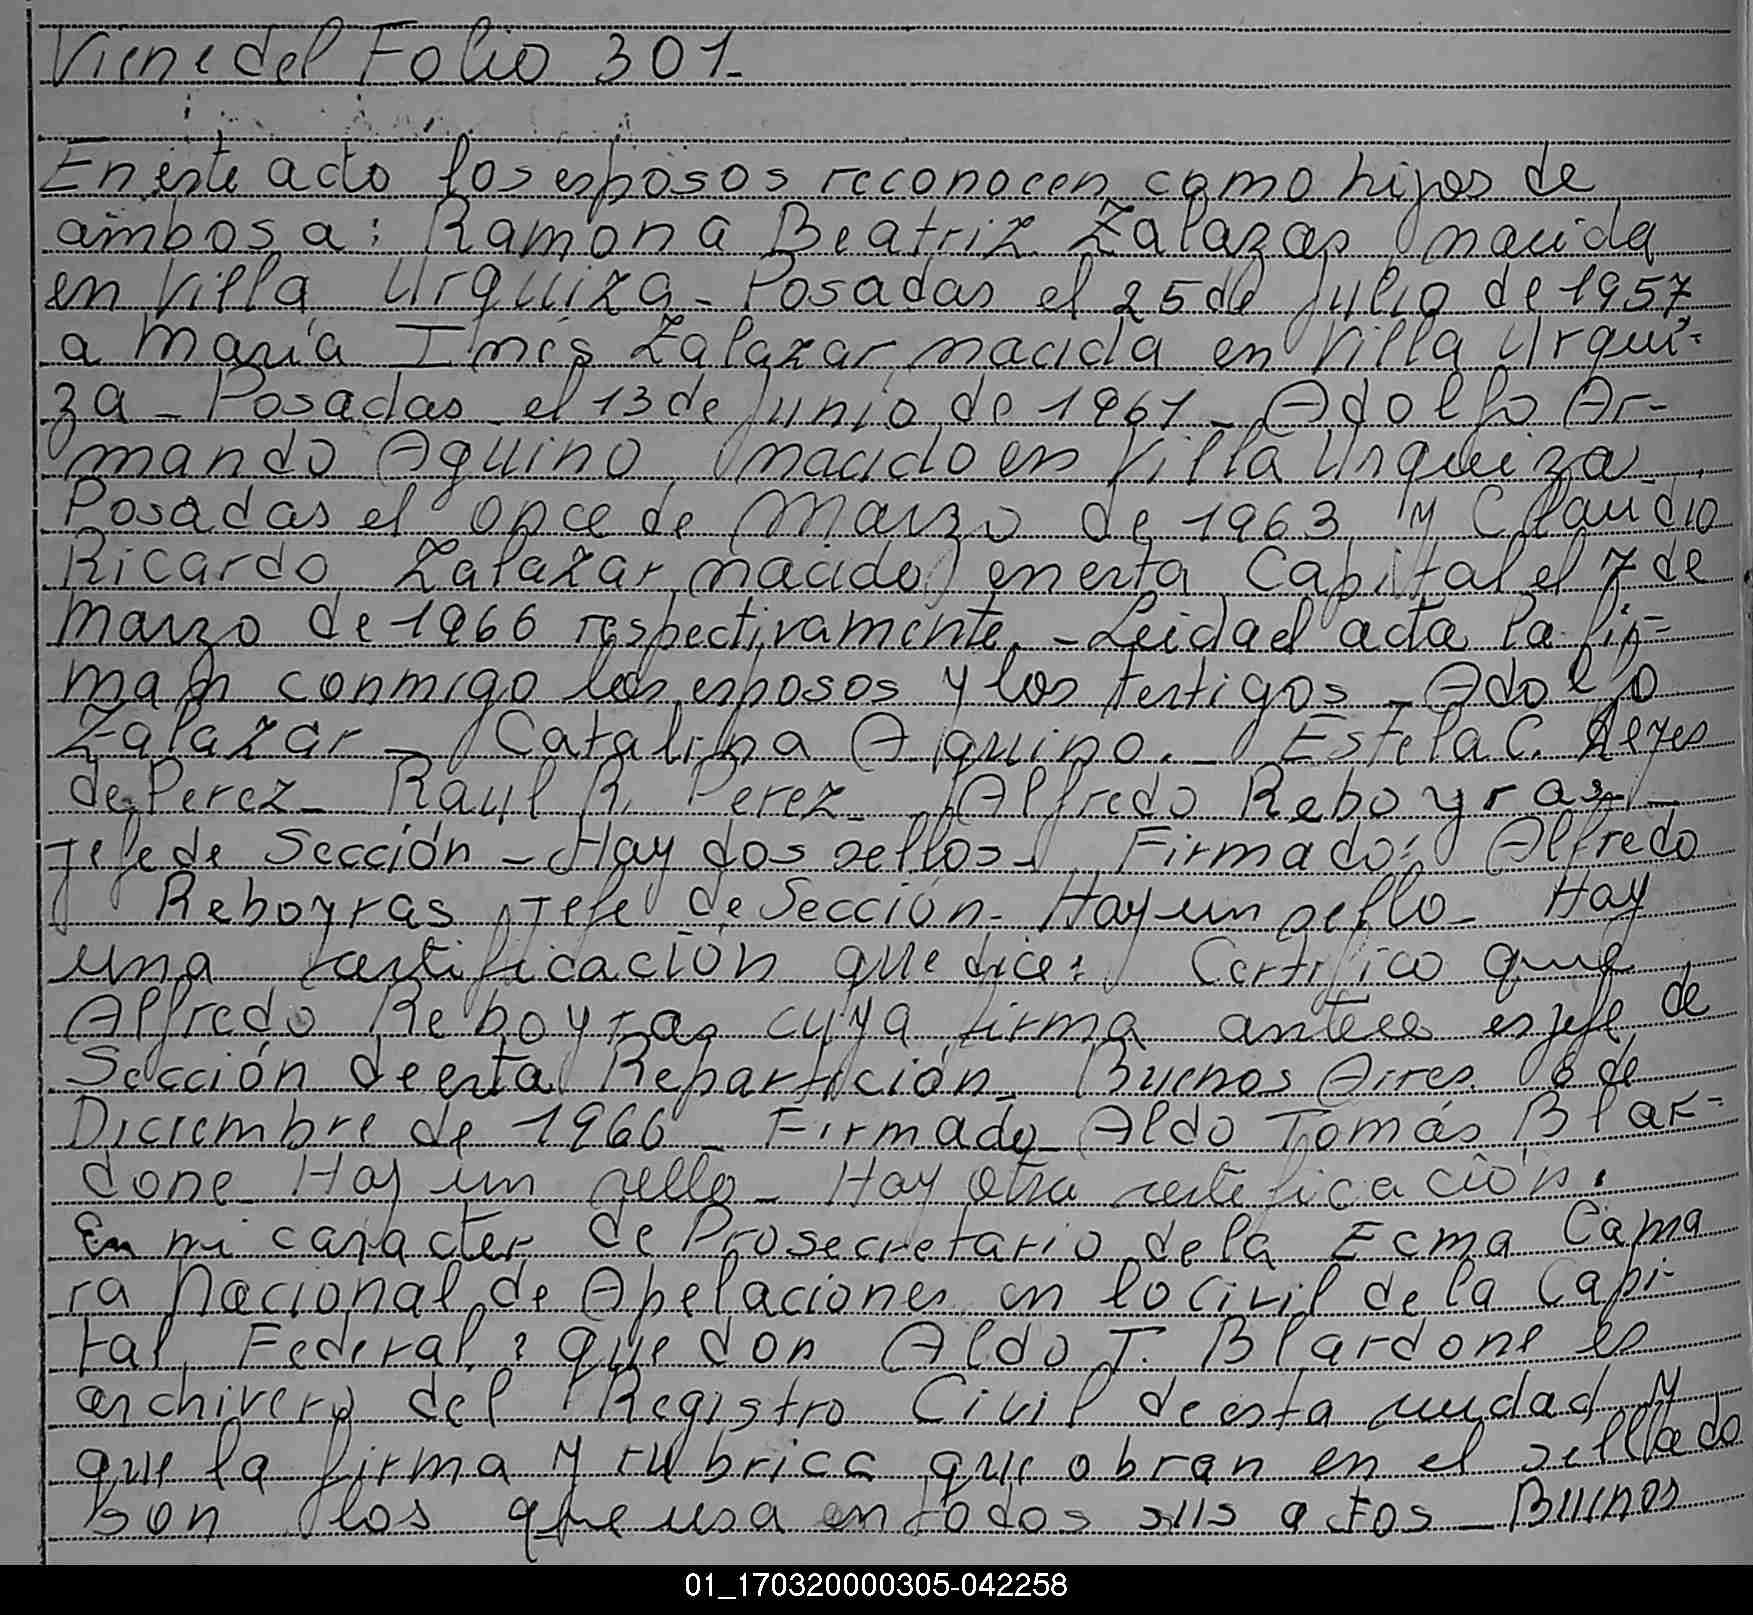 Viene del Folio 301.-
En este acto los esposos reconocen como hijos de
ambos a: Ramona Beatriz Zalazar, nacida
en Villa Urquiza - Posadas el 25 de Julio de 1957
a María Inés Zalazar, nacida en Villa Urqui=
za - Posadas el 13 de Junio de 1961 - Adolfo Ar-
mando Aquino, nacido en Villa Urquiza
Posadas el once de Marzo de 1963 y Claudio
Ricardo Zalazar, nacido en esta Capital el 7 de
marzo de 1966 respectivamente. - Leida el acta la fir=
man conmigo los esposos y los testigos - Adolfo
Zalazar - Catalina Aquino. - Estela C. Reyes
de Perez - Raul R. Perez - Alfredo Reboyras -
Jefe de Sección - Hay dos sellos - Firmado: Alfredo
Reboyras Jefe de Sección - Hay un sello - Hay
una certificación que dice: Certifico que
Alfredo Reboyras cuya firma antece es jefe de
Sección de esta Repartición - Buenos Aires. 6 de
Diciembre de 1966 - Firmado - Aldo Tomás Blar=
done - Hay un sello - Hay otra certificación.
En mi caracter de Prosecretario de la Ecma Cama
ra Nacional de Apelaciones en lo Civil de la Capi-
tal Federal: que don Aldo T. Blardone es
archivero del Registro Civil de esta ciudad y
que la firma y rubrica que obran en el sellado
son los que usa en todos sus actos - Buenos
01_170320000305-042258